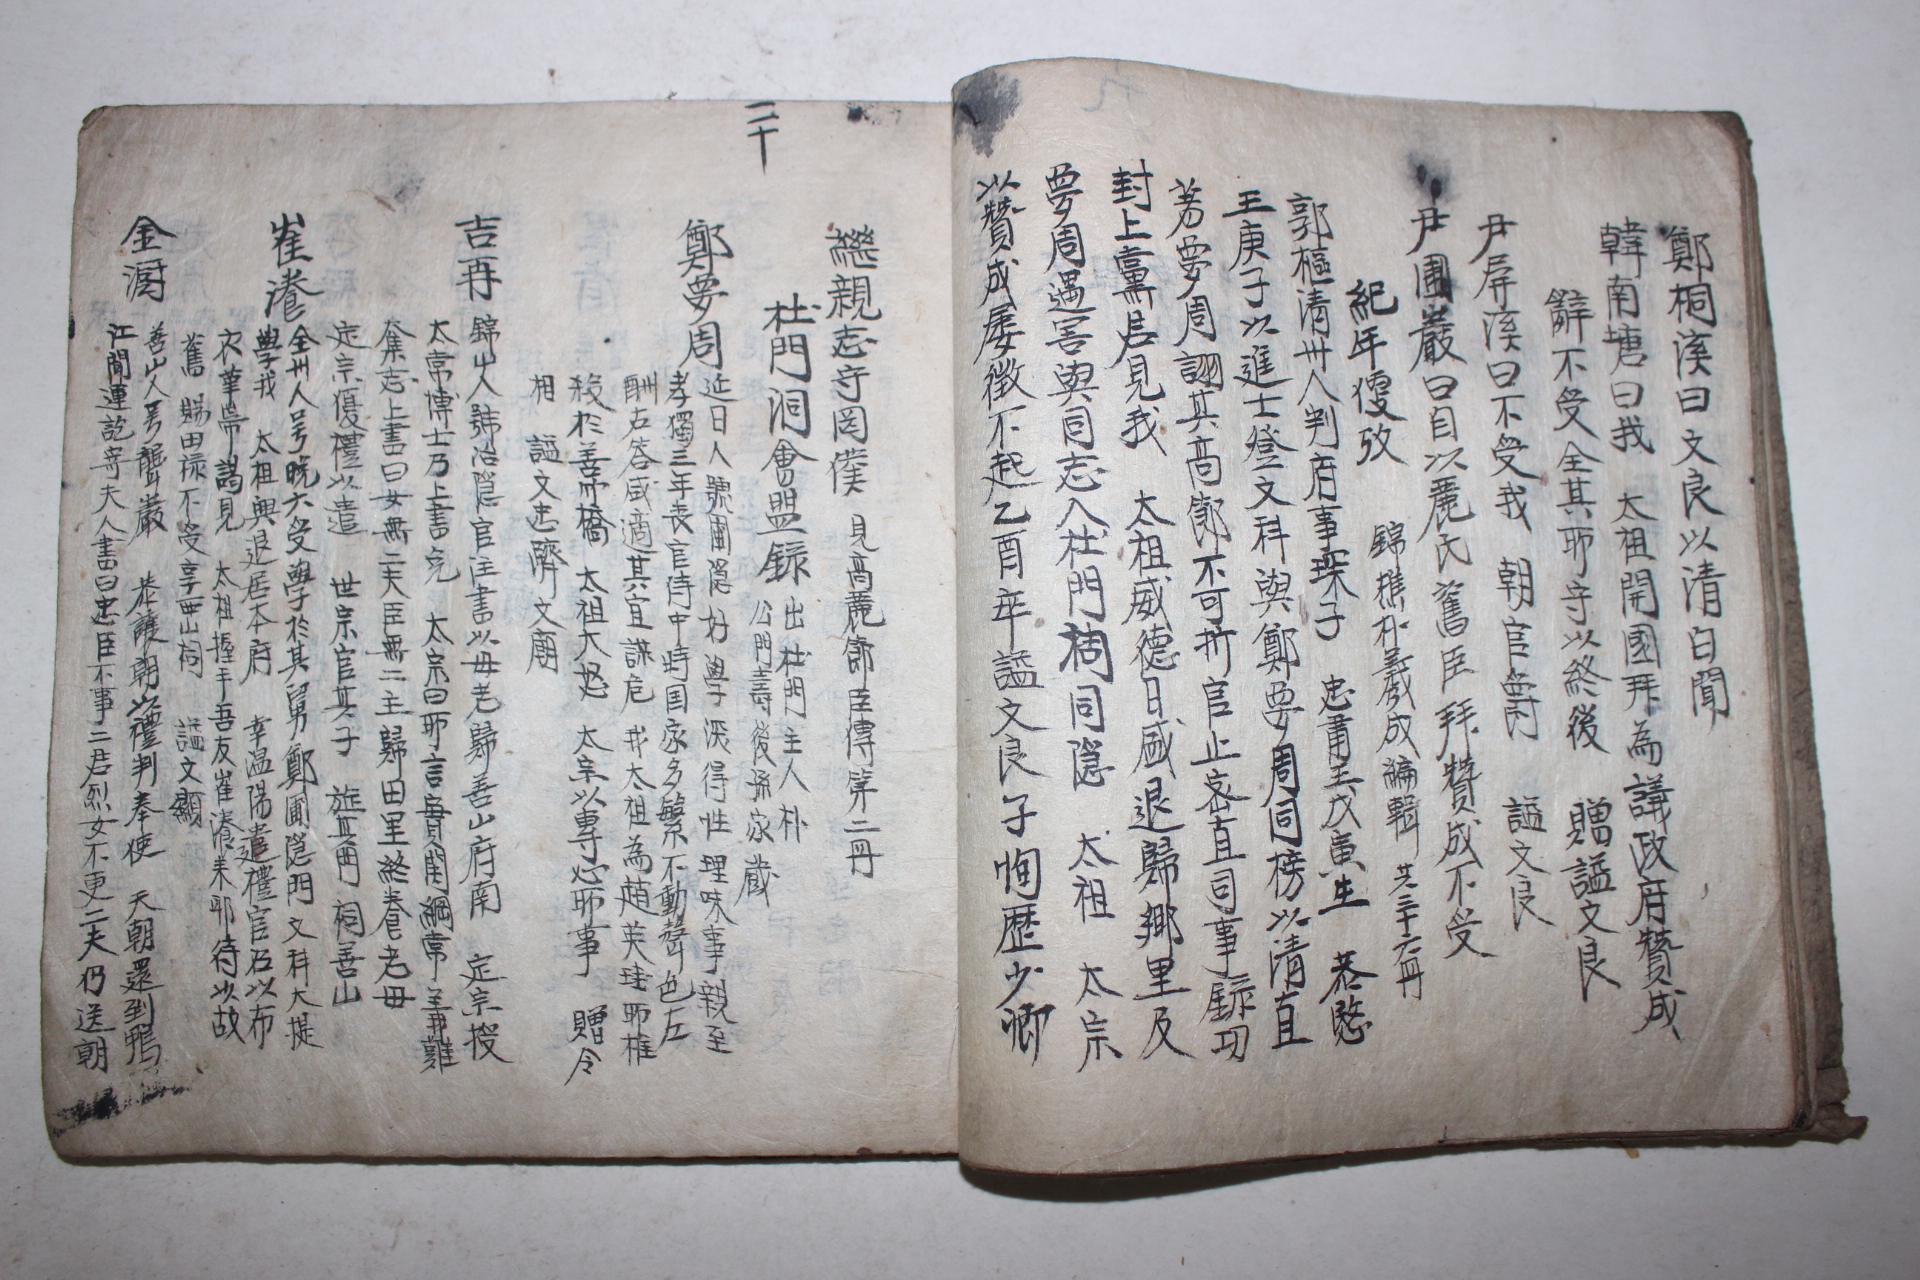 鄭桐溪曰文良以清白聞
韓南塘曰我 太祖開國拜為議政府贊成
辭不受全其所守以終後 贈諡文良
尹屏溪曰不受我 朝官爵 諡文良
尹圃巖曰自以麗氏舊臣拜贊成不受
紀年便攷 錦樵朴義成編輯 共三十六冊
郭樞清州人判府事琛子 忠肅王戊寅生 恭愍
王庚子以進士登文科與鄭夢周同榜以清直
芳夢周詡其高 不可 官止密直司事錄功
封上黨君見我 太祖威德日盛退歸鄉里及
夢周遇害與同志入杜門洞同隱 太祖 太宗
以贊成屢徵不起乙酉年諡文良子恂歷少卿
二十
懋親志守罔僕 見高麗節臣傳第二冊
杜門洞會盟錄 出杜門主人朴
公門壽後孫家藏
鄭夢周 近日人號圃隱好學深得性理味事親至
孝獨三年喪官侍中時國家多繁不動聲色左
酬右答咸適其宜謀危 我太祖為趙英珪所椎
殺於善竹橋 太祖大怒 太宗以專心所事 贈令
相 諡文忠躋文廟
吉再 錦山人號冶隱官注書以母老歸善山府南 定宗授
太常博士乃上書 太宗曰所言實關綱常 難
奪志上書曰女無二夫臣無二主歸田里終養老母
定宗優禮以遣 世宗官其子 旌其門 祠善山
崔瀁 全州人号晚六受學於其舅鄭圃隱門文科大提
學我 太祖興退居本府 幸温陽遣禮官召以布
衣華 謁見 太祖握手吾友崔瀁来耶待以故
舊 賜田祿不受享西山祠 諡文顯
金澍 善山人号籠巖 恭讓朝以禮判奉使 天朝還到鴨
江聞運訖寄夫人書曰忠臣不事二君烈女不更二夫仍送朝